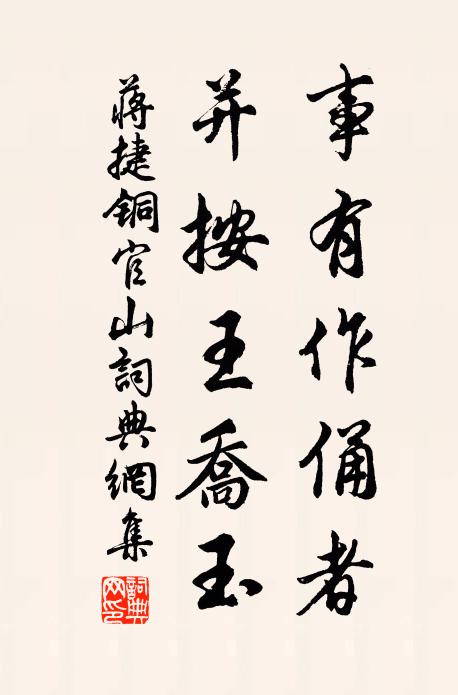 事有作俑者
并按王喬玉
蔣捷銅官山詞典網集
詞典網印